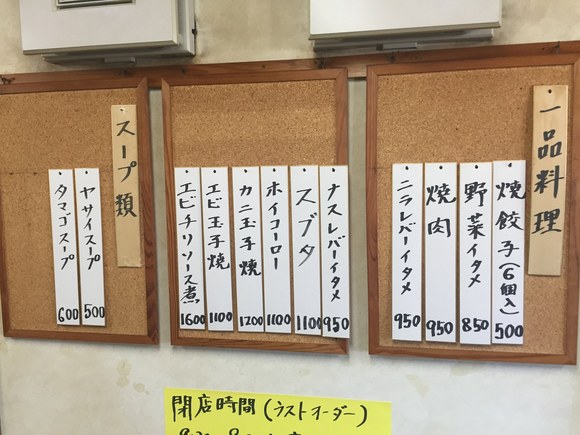 一品料理
焼餃子(6個入) 500
野菜イタメ 850
焼肉 950
ニラレバーイタメ 950
ナスレバーイタメ 950
スブタ 1100
ホイコーロー 1100
カニ玉子焼 1200
エビ玉子焼 1100
エビチリソース煮 1600
スープ類
ヤサイスープ 500
タマゴスープ 600
閉店時間(ラストオーダー)